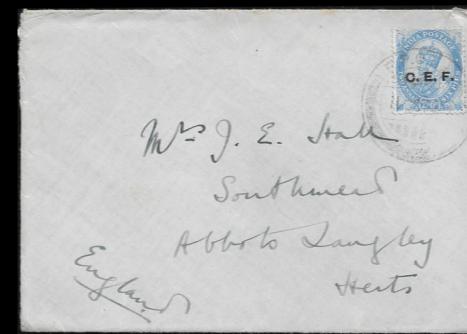 INDIA POSTAGE
C. E. F.
Mrs J. E. Hall
Southmead
Abbots Langley
Herts
England